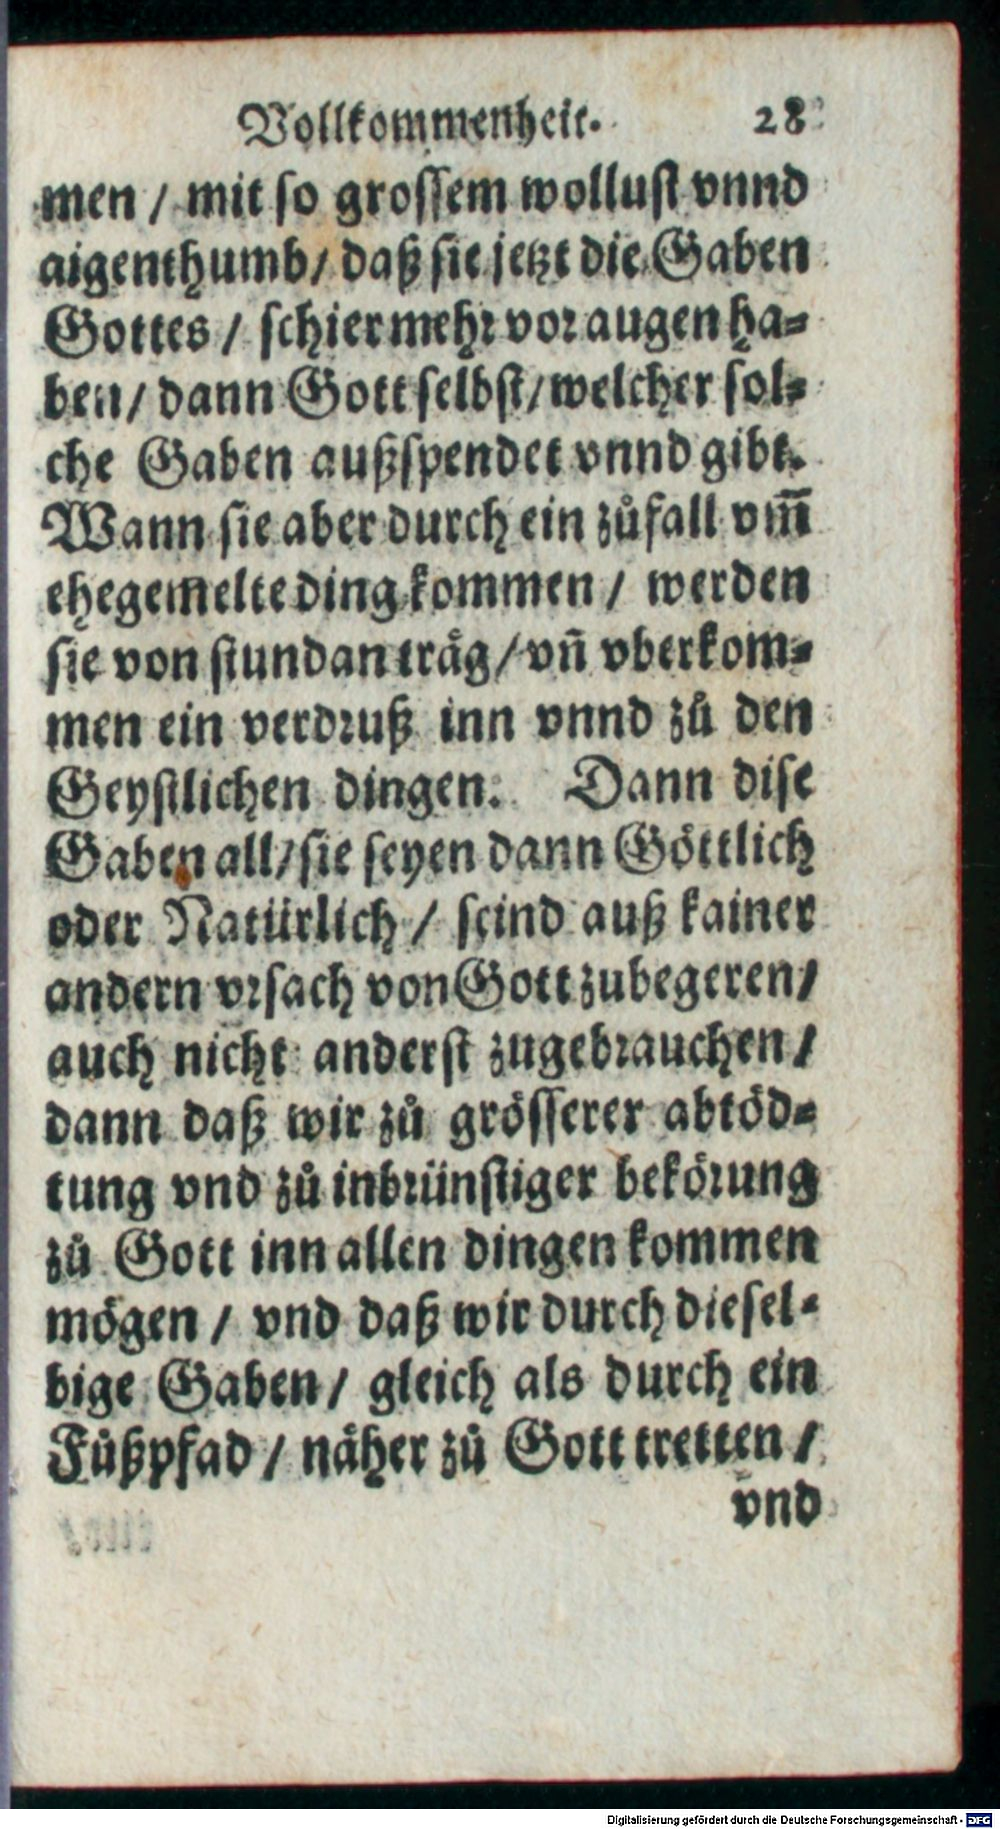 Vollkommenheit. 28
men / mit so grossem wollust vnnd
aigenthumb / daß sie jetzt die Gaben
Gottes / schier mehr vor augen ha-
ben / dann Gott selbst / welcher sol-
che Gaben außspendet vnnd gibt.
Wann sie aber durch ein zůfall vm̃
ehegemelte ding kommen / werden
sie von stundan träg / vñ vberkom-
men ein verdruß inn vnnd zů den
Geystlichen dingen. Dann dise
Gaben all / sie seyen dann Göttlich
oder Natürlich / seind auß kainer
andern vrsach von Gott zubegeren /
auch nicht anderst zugebrauchen /
dann daß wir zů grösserer abtöd-
tung vnd zů inbrünstiger bekörung
zů Gott inn allen dingen kommen
mögen / vnd daß wir durch diesel-
bige Gaben / gleich als durch ein
Fůßpfad / näher zů Gott tretten /
vnd
Digitalisierung gefördert durch die Deutsche Forschungsgemeinschaft - DFG